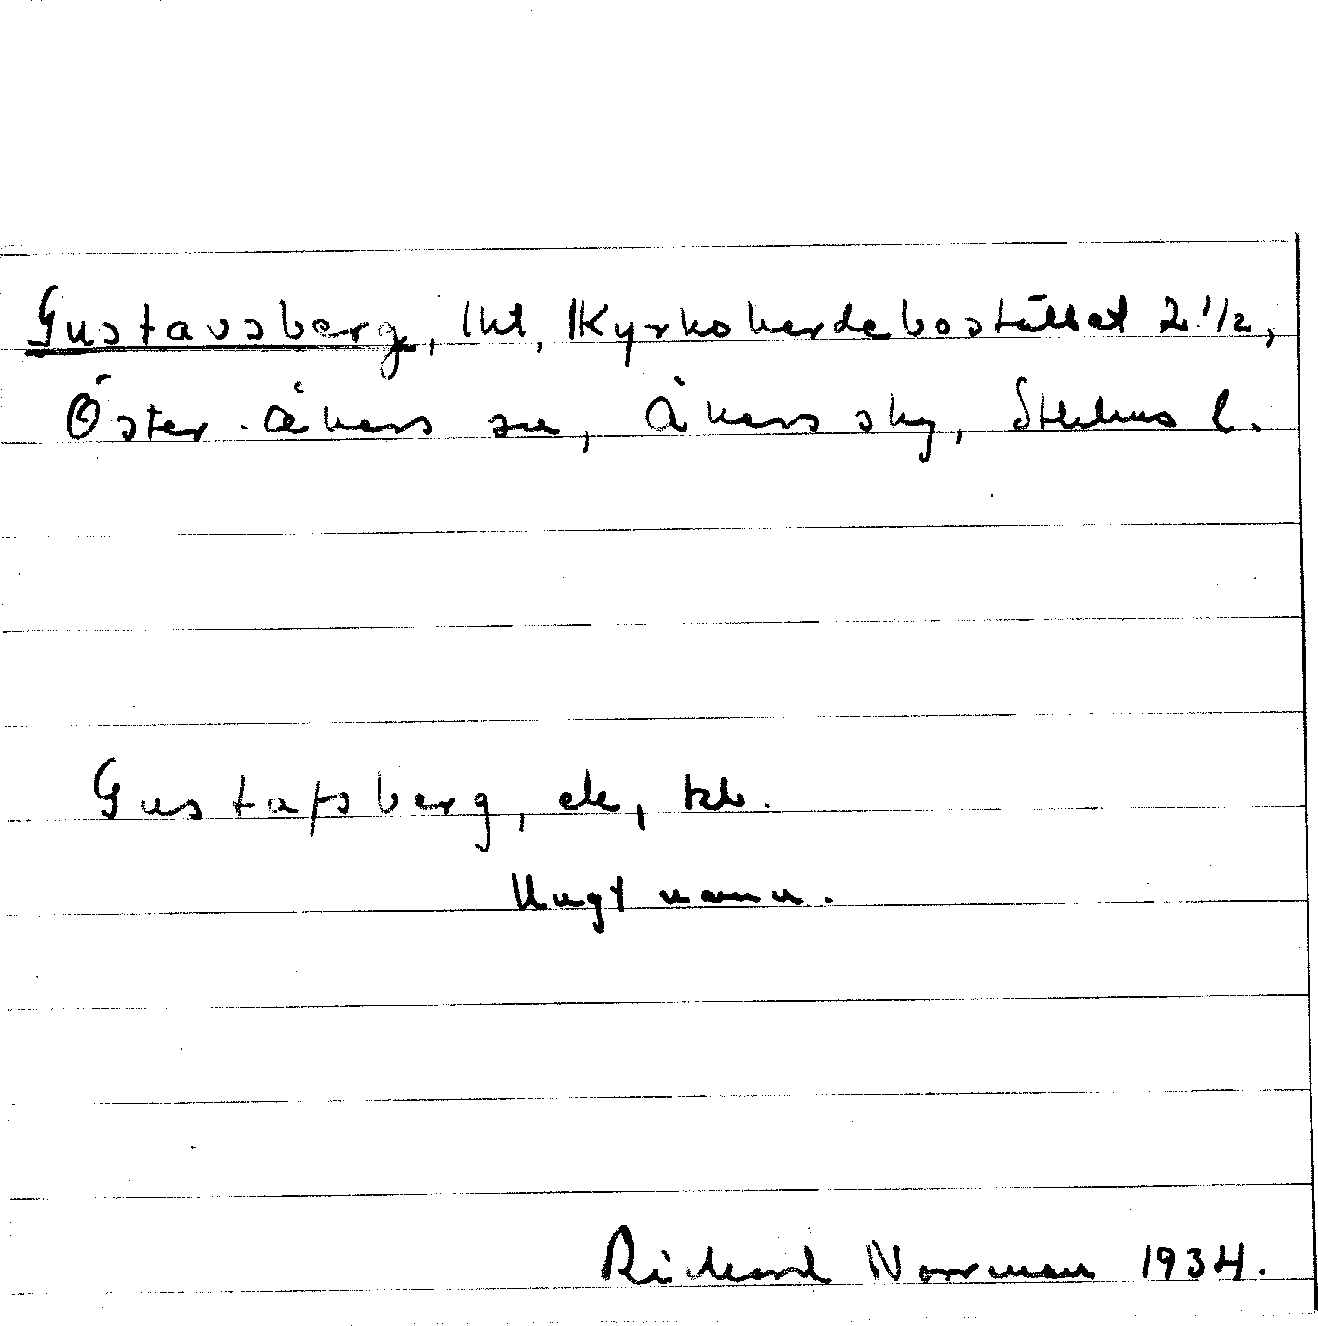 Gustavsberg, lht, Kyrkoherdebostället 2 1/2,
Öster-Åkers sn, Åkers skg, Sthlms l.
Gustafsberg, ek, kb.
Ungt namn.
Rickard Norrman 1934.